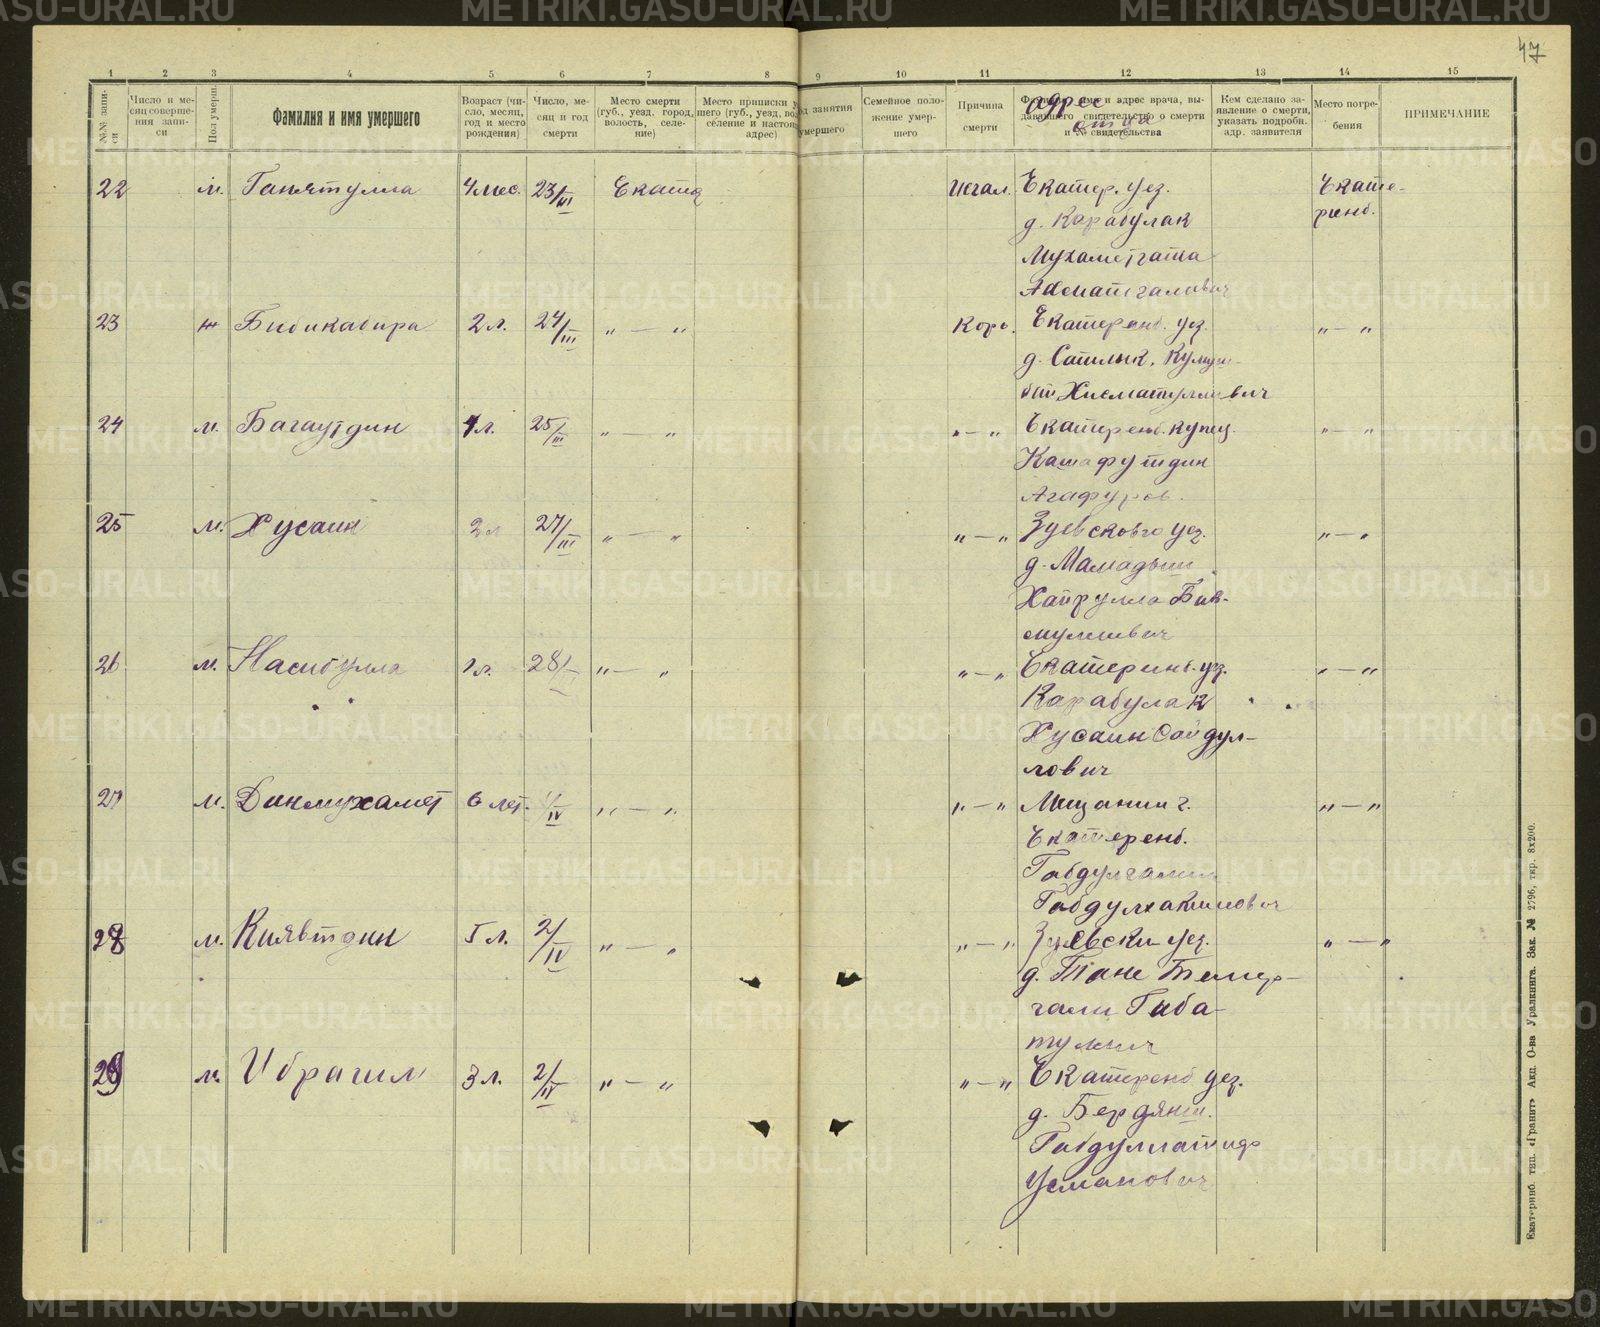 47
1 2 3 4 5 6 7 8 9 10 11 12 13 14 15
№№ записи
Число и месяц совершения записи
Пол умерш.
Фамилия и имя умершего
Возраст (число, месяц, год и место рождения)
Число, месяц и год смерти
Место смерти (губ., уезд, город, волость, селение)
Место приписки у
шего (губ., уезд, во
селение и настоящ
адрес)
од занятия
умершего
Семейное положение умершего
Причина смерти
Фамилия, имя и адрес врача, выдавшего свидетельство о смерти и № свидетельства
адрес
отца
Кем сделано заявление о смерти, указать подробн. адр. заявителя
Место погребения
ПРИМЕЧАНИЕ
22 м. Ганятулла 4 мес. 23/III Екатер. уез. Екате-
д. Карабулак ренб.
23 ж Бибикабира 2 л. 24/III „ — „ Корь. Екатеренб. уез. „ — „
д. Сатлык,
Хисматуллович
24 м. Багаутдин 25/III „ — „ „ — „ Екатеренб. купец. „ — „
Камафутдин
Агафуров.
25 м. Хусаин 2 л 27/III „ — „ „ — „ уез. „ — „
д. Мамадыш
Хайрулла Бик-
муллович
26 м. Насибулла 28/ „ — „ „ — „ Екатеринб. уез. „ — „
Карабулак
Хусаин Сайдул-
лович
27 м. Динмухамет 6 лет. /IV „ — „ „ — „ Мещанин г. „ — „
Екатеренб.
Габдулхакимович
28 м. Киявтдин 5 л. 2/IV „ — „ „ — „ уез. „ — „
д.
29 м. Ибрагим 3 л. 2/IV „ — „ „ — „ Екатеренб уез.
д. Бердяш.
Усманович
Екатеринб. тип. «Гранит» Акц. О-ва Уралкнига. Зак. № 2796, тир. 8х200.
METRIKI.GASO-URAL.RU